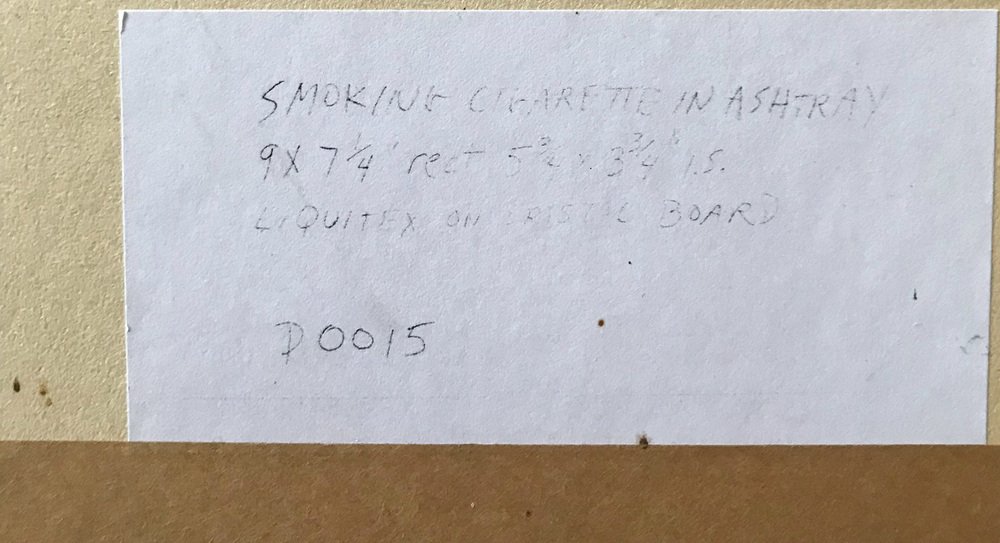 SMOKING CIGARETTE IN ASHTRAY
9 X 7 1/4" rect 5 3/4 x 3 3/4" I.S.
LIQUITEX ON BOARD
D0015